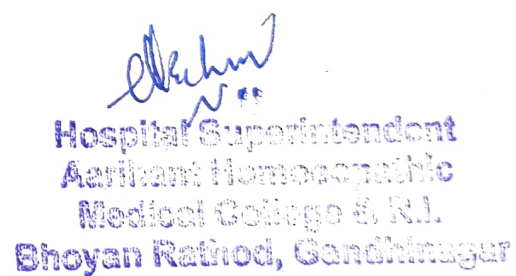 Hospital Superintendent
Aarihant Homoeopathic
Medical College & R.I.
Bhoyan Rathod, Gandhinagar